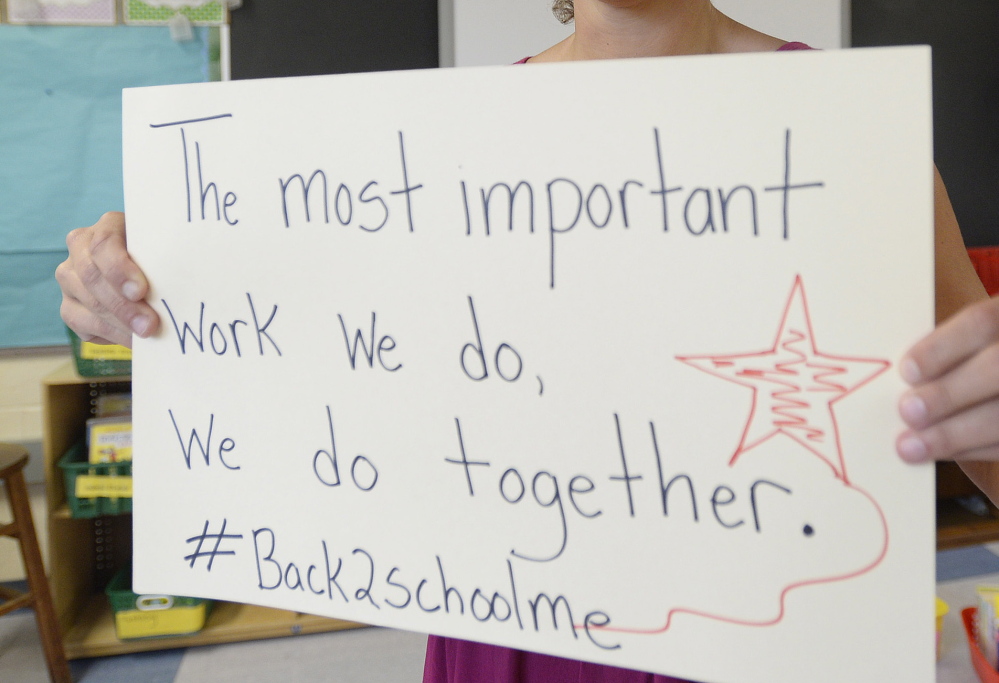 The most important
Work We do,
We do together.
#Back2schoolme